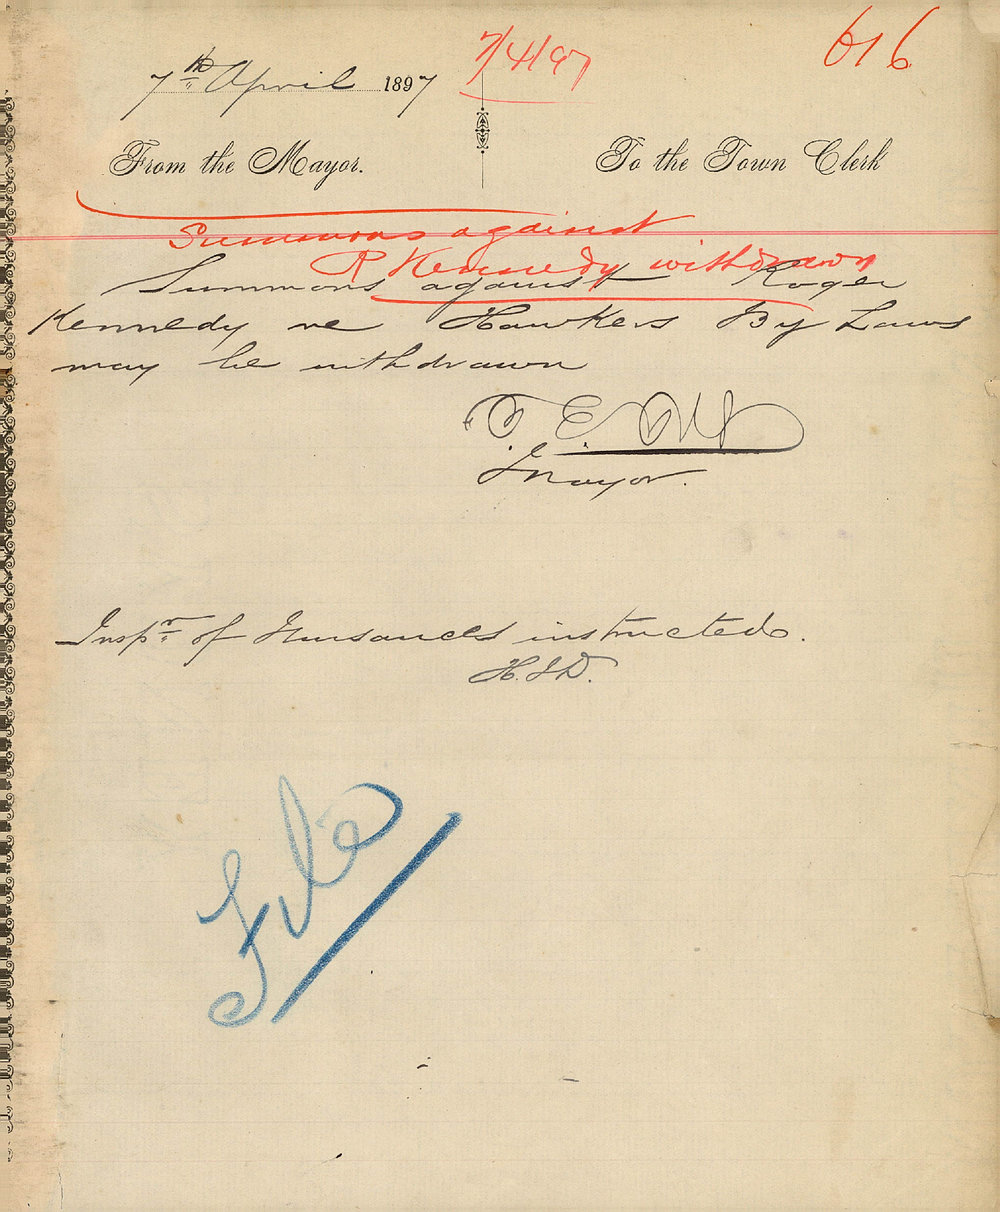 616
7/4/97
7th April 1897
From the Mayor.
To the Town Clerk
Summons against
R Kennedy withdrawn
Summons against Roger
Kennedy re Hawkers By Laws
may be withdrawn
Mayor.
Inspr of Nuisances instructed.
H.J.D.
File